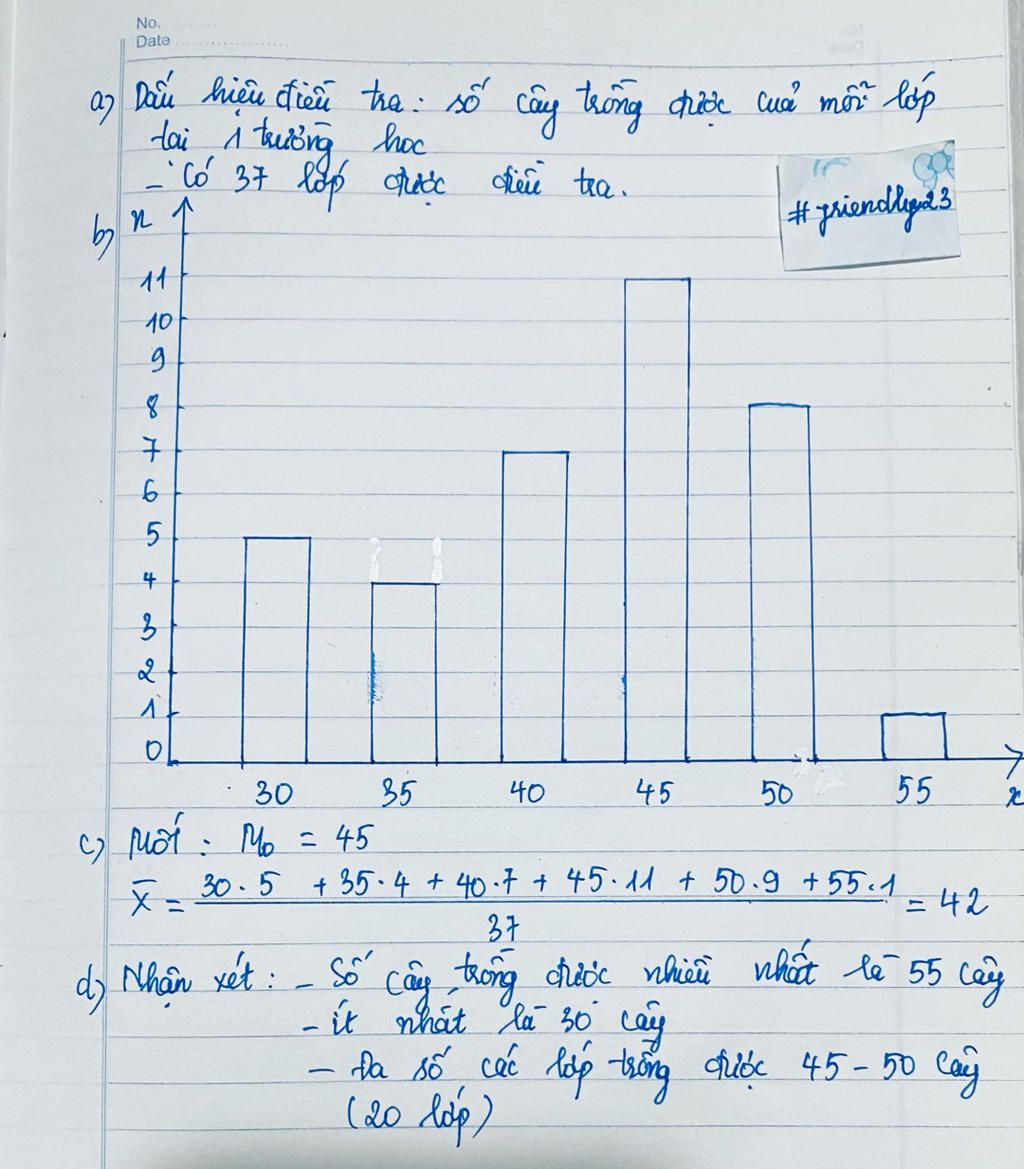 No.
Date
a) Dấu hiệu điều tra: số cây trồng được của mỗi lớp
tại 1 trường học
- Có 37 lớp được điều tra.
#friendly23
b) n
11
10
9
8
7
6
5
4
3
2
1
0
30 35 40 45 50 55 x
c) Mốt: M₀ = 45
X̄ = (30.5 + 35.4 + 40.7 + 45.11 + 50.9 + 55.1) / 37 = 42
d) Nhận xét: - Số cây trồng được nhiều nhất là 55 cây
- ít nhất là 30 cây
- Đa số các lớp trồng được 45 - 50 cây
(20 lớp)